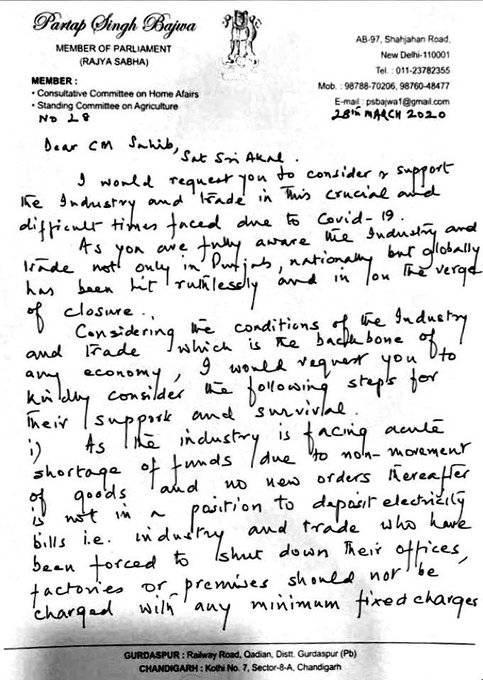 Partap Singh Bajwa
MEMBER OF PARLIAMENT
(RAJYA SABHA)
MEMBER :
• Consultative Committee on Home Afairs
• Standing Committee on Agriculture
NO 28
AB-97, Shahjahan Road,
New Delhi-110001
Tel. : 011-23782355
Mob. : 98788-70206, 98760-48477
E-mail : psbajwa1@gmail.com
28th MARCH 2020
Dear CM Sahib,
Sat Sri Akal.
I would request you to consider & support
the Industry and trade in this crucial and
difficult times faced due to Covid-19.
As you are fully aware the Industry and
trade not only in Punjab, nationally but globally
has been hit ruthlessly and in on the verge
of closure.
Considering the conditions of the Industry
and trade which is the backbone of
any economy, I would request you to
kindly consider the following steps for
their support and survival.
i) As the industry is facing acute
shortage of funds due to non-movement
of goods and no new orders thereafter
is not in a position to deposit electricity
bills i.e. industry and trade who have
been forced to shut down their offices,
factories or premises should not be
charged with any minimum fixed charges
GURDASPUR : Railway Road, Qadian, Distt. Gurdaspur (Pb)
CHANDIGARH : Kothi No. 7, Sector-8-A, Chandigarh